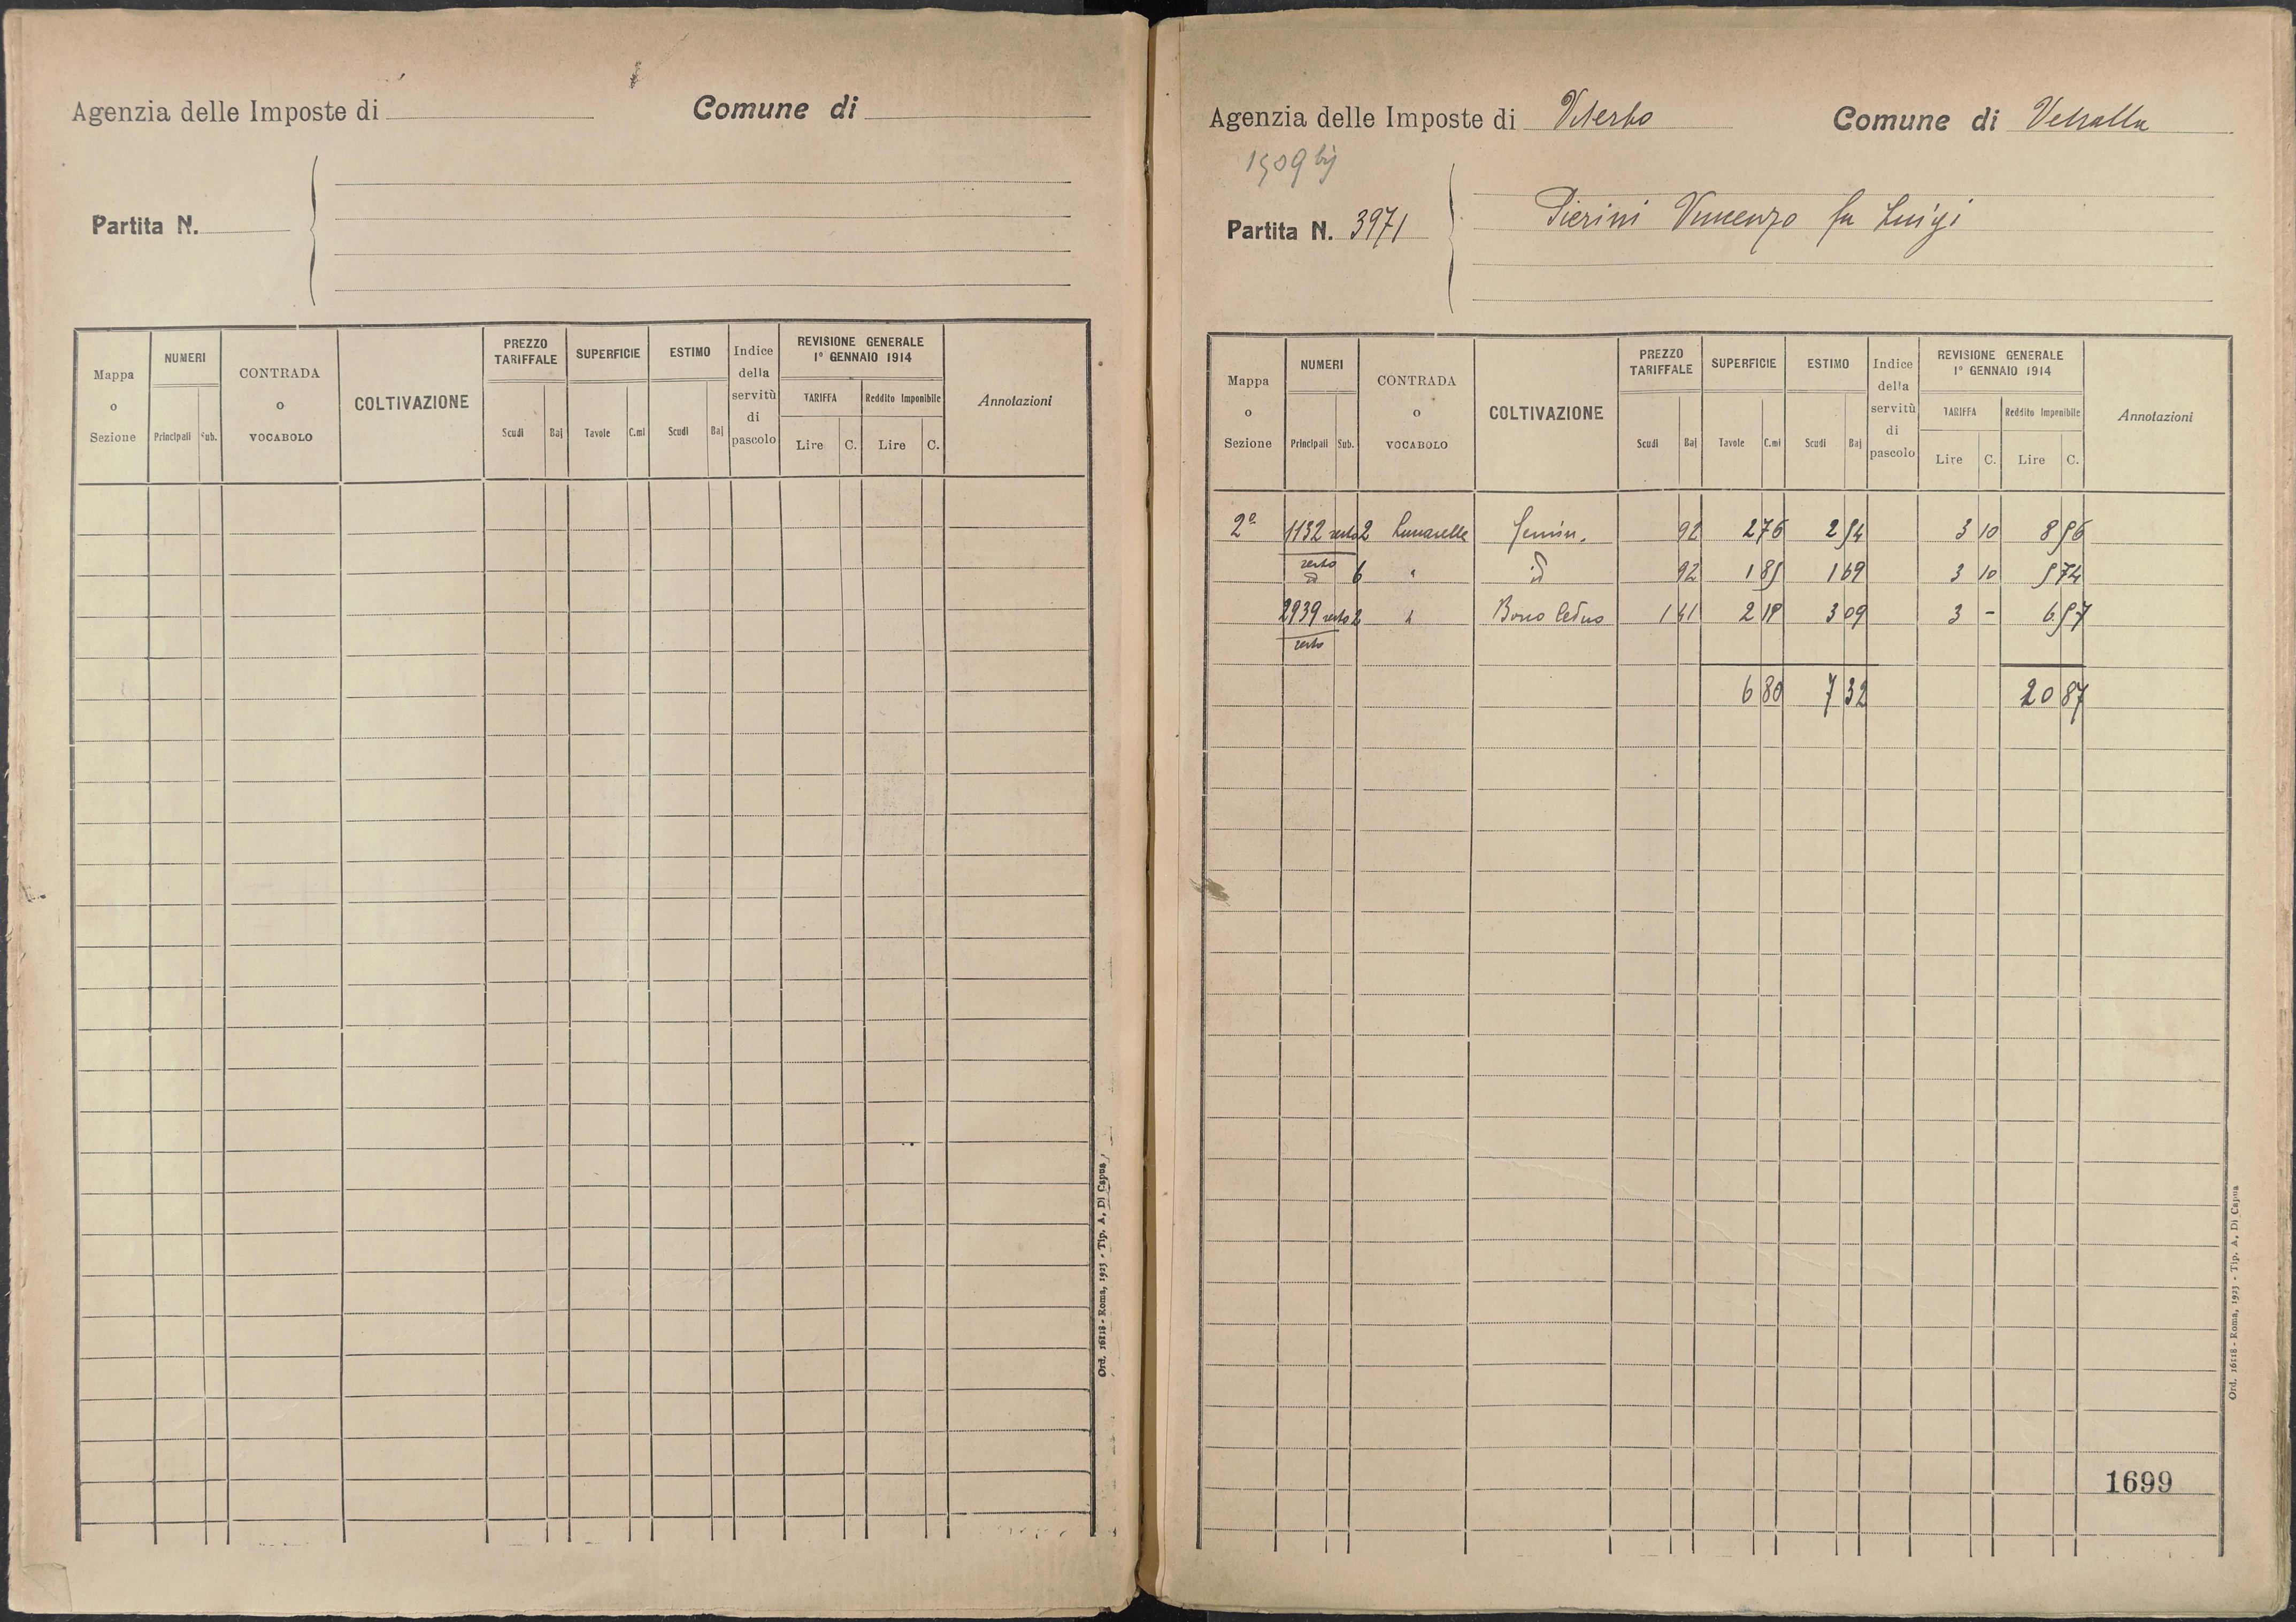 Agenzia delle Imposte di
Comune di
Partita N.
Mappa o Sezione
NUMERI
Principali
Sub.
CONTRADA o VOCABOLO
COLTIVAZIONE
PREZZO TARIFFALE
Scudi
Baj
SUPERFICIE
Tavole
C.mi
ESTIMO
Scudi
Baj
Indice della servitù di pascolo
REVISIONE GENERALE
1º GENNAIO 1914
TARIFFA
Reddito Imponibile
Lire
C.
Lire
C.
Annotazioni
Ord. 16118 - Roma, 1923 - Tip. A. Di Capua
Agenzia delle Imposte di Viterbo
Comune di Vetralla
1509 bis
Partita N. 3971
Pierini Vincenzo fu Luigi
Mappa o Sezione
NUMERI
Principali
Sub.
CONTRADA o VOCABOLO
COLTIVAZIONE
PREZZO TARIFFALE
Scudi
Baj
SUPERFICIE
Tavole
C.mi
ESTIMO
Scudi
Baj
Indice della servitù di pascolo
REVISIONE GENERALE
1º GENNAIO 1914
TARIFFA
Reddito Imponibile
Lire
C.
Lire
C.
Annotazioni
2ª 1132 resto 2 Semin. 92 2 76 2 54 3 10 8 56
resto
id 6 " id 92 1 85 1 69 3 10 5 74
2939 resto 2 " Bosco Ceduo 1 41 2 19 3 09 3 - 6 57
resto
6 80 7 32 20 87
1699
Ord. 16118 - Roma, 1923 - Tip. A. Di Capua